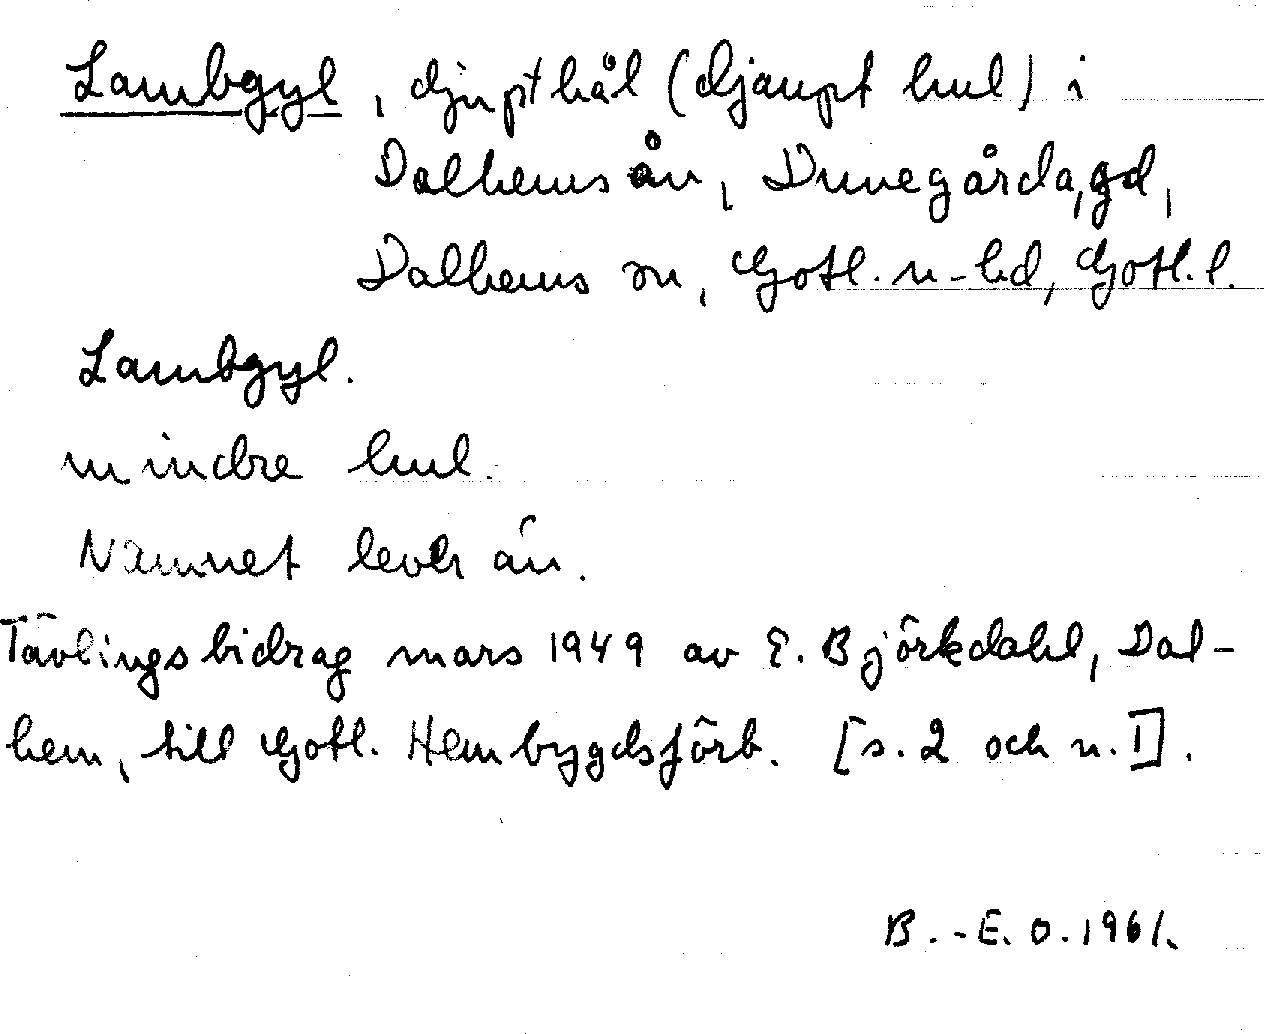 Lambgyl, djupt hål (djaupt hul) i
Dalhemsån, Dunegårda, gd,
Dalhems sn, Gotl. n-hd, Gotl. l.
Lambgyl.
mindre hul.
Namnet lever än.
Tävlingsbidrag mars 1949 av E. Björkdahl, Dal-
hem, till Gotl. Hembygdsförb. [s. 2 och n. I].
B.-E. O. 1961.